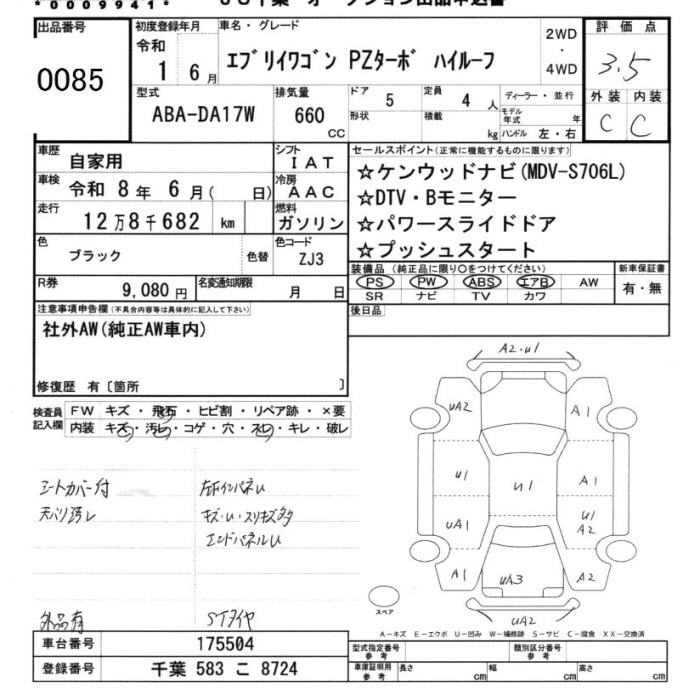 *0009941*
出品番号
0085
初度登録年月
令和
1 6月
車名・グレード
エブリイワゴン PZターボ ハイルーフ
2WD
・
4WD
評価点
3.5
外装 内装
C C
型式
ABA-DA17W
排気量
660
cc
ドア
5
定員
4人
形状
積載
kg
ディーラー・並行
モデル年式 年
ハンドル 左・右
車歴
自家用
シフト
IAT
車検
令和 8年 6月( 日)
冷房
AAC
走行
12万8千682 km
燃料
ガソリン
色
ブラック
色替
色コード
ZJ3
R券
9,080円
名変通知期限
月 日
セールスポイント(正常に機能するものに限ります)
☆ケンウッドナビ(MDV-S706L)
☆DTV・Bモニター
☆パワースライドドア
☆プッシュスタート
装備品(純正品に限り○をつけてください)
PS PW ABS エアB AW
SR ナビ TV カワ
新車保証書
有・無
後日品
注意事項申告欄(不具合内容等は具体的に記入して下さい)
社外AW(純正AW車内)
修復歴 有〔箇所 〕
検査員
記入欄
FW キズ・飛石・ヒビ割・リペア跡・×要
内装 キズ・汚レ・コゲ・穴・スレ・キレ・破レ
シートカバー付
天バリ汚レ
キズ・U・スリキズ多
エンドパネルU
外品有
STタイヤ
A2・U1
UA2
A1
U1
U1
A1
UA1
U1
A2
A1
UA3
A2
UA2
スペア
A-キズ E-エクボ U-凹み W-補修跡 S-サビ C-腐食 XX-交換済
車台番号
175504
登録番号
千葉 583 こ 8724
型式指定番号
参考
類別区分番号
参考
車庫証明用
参考
長さ cm
幅 cm
高さ cm